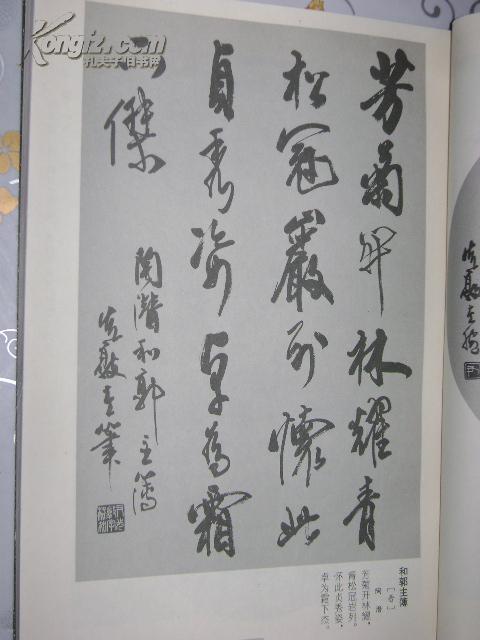 Kongfz.com
孔夫子旧书网
芳菊開林耀青
松冠巖列懷此
貞秀姿卓為霜
下傑
陶潛和郭主簿
和郭主簿
[晋]
陶潜
芳菊开林耀，
青松冠岩列。
怀此贞秀姿，
卓为霜下杰。